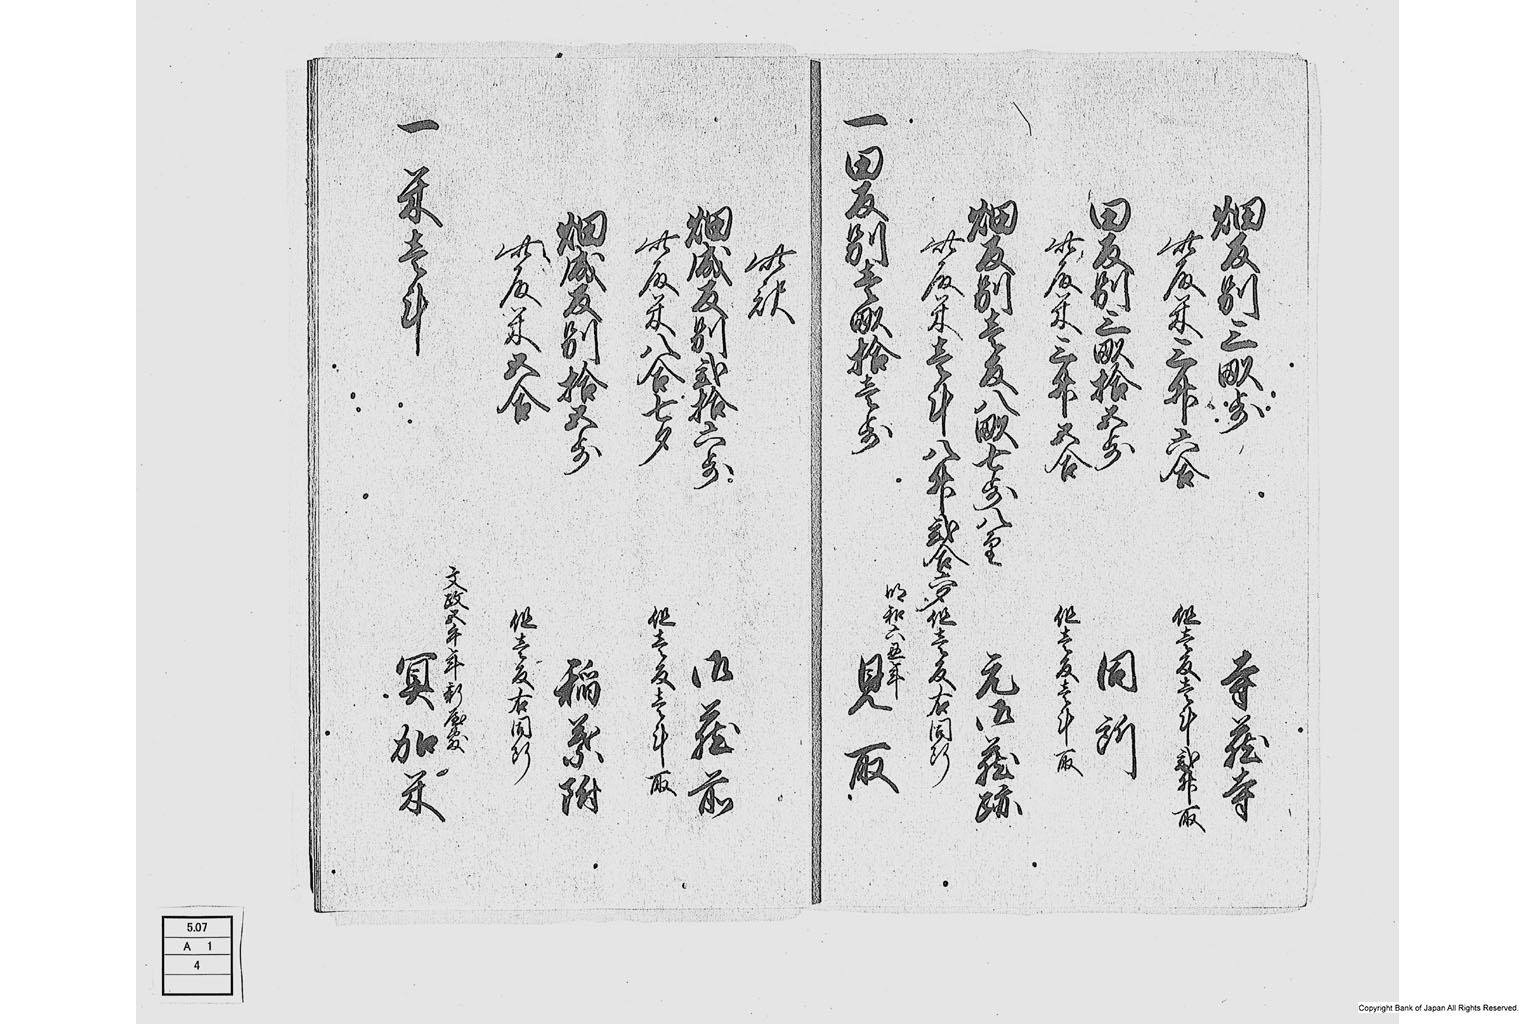 畑反別三畝歩
寺蔵寺
此反米三升六合
但壱反壱斗弐升取
田反別三畝拾五歩
同所
此反米三升五合
但壱反壱斗取
畑反別壱反八畝七歩八里
元御蔵跡
此反米壱斗八升弐合六夕
但壱反右同断
明和六丑年
一田反別壱畝拾壱歩
見取
此訳
畑成反別弐拾六歩
御蔵前
此反米八合七夕
但壱反壱斗取
畑成反別拾五歩
稲葉附
此反米五合
但壱反右同断
文政五午年新屋敷
一米壱斗
冥加米
5.07
A 1
4
Copyright Bank of Japan All Rights Reserved.